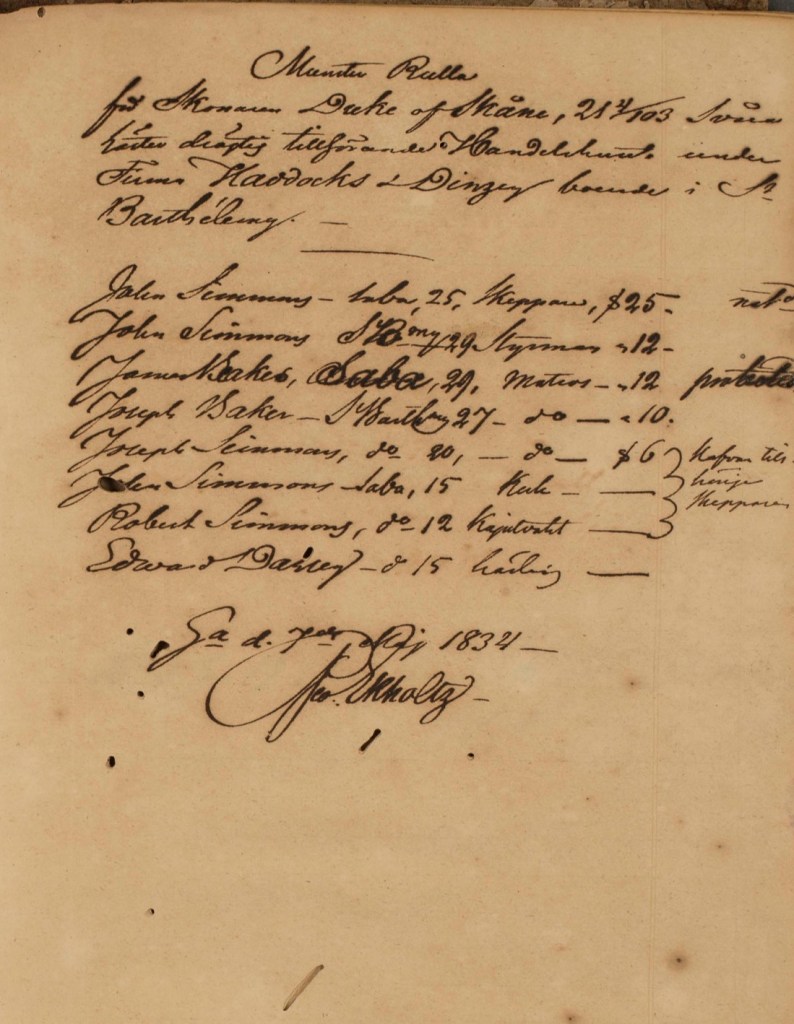 Munster Rulla
för Skonaren Duke of Skåne, 21 4/103 Svåra
läster drägtig tillförande Handelshuset under
Firma Haddocks & Dinzey boende i St
Barthélemy. —
John Simmons – Saba, 25, Skeppare, $25 –
John Simmons St Bmy 29 Styrman „ 12 –
James Baker, Saba, 29, Matros – „ 12
Joseph Baker – St Barthmy 27 – do — „ 10.
Joseph Simmons, do 20, — do — $6 } Slafvar till-
John Simmons Saba, 15 Kock – — } hörige
Robert Simmons, do 12 Kajutvakt — } Skepparen
Edward Dassey – do 15 —
Ga d. 7de Maj 1834 —
Ekholtz –